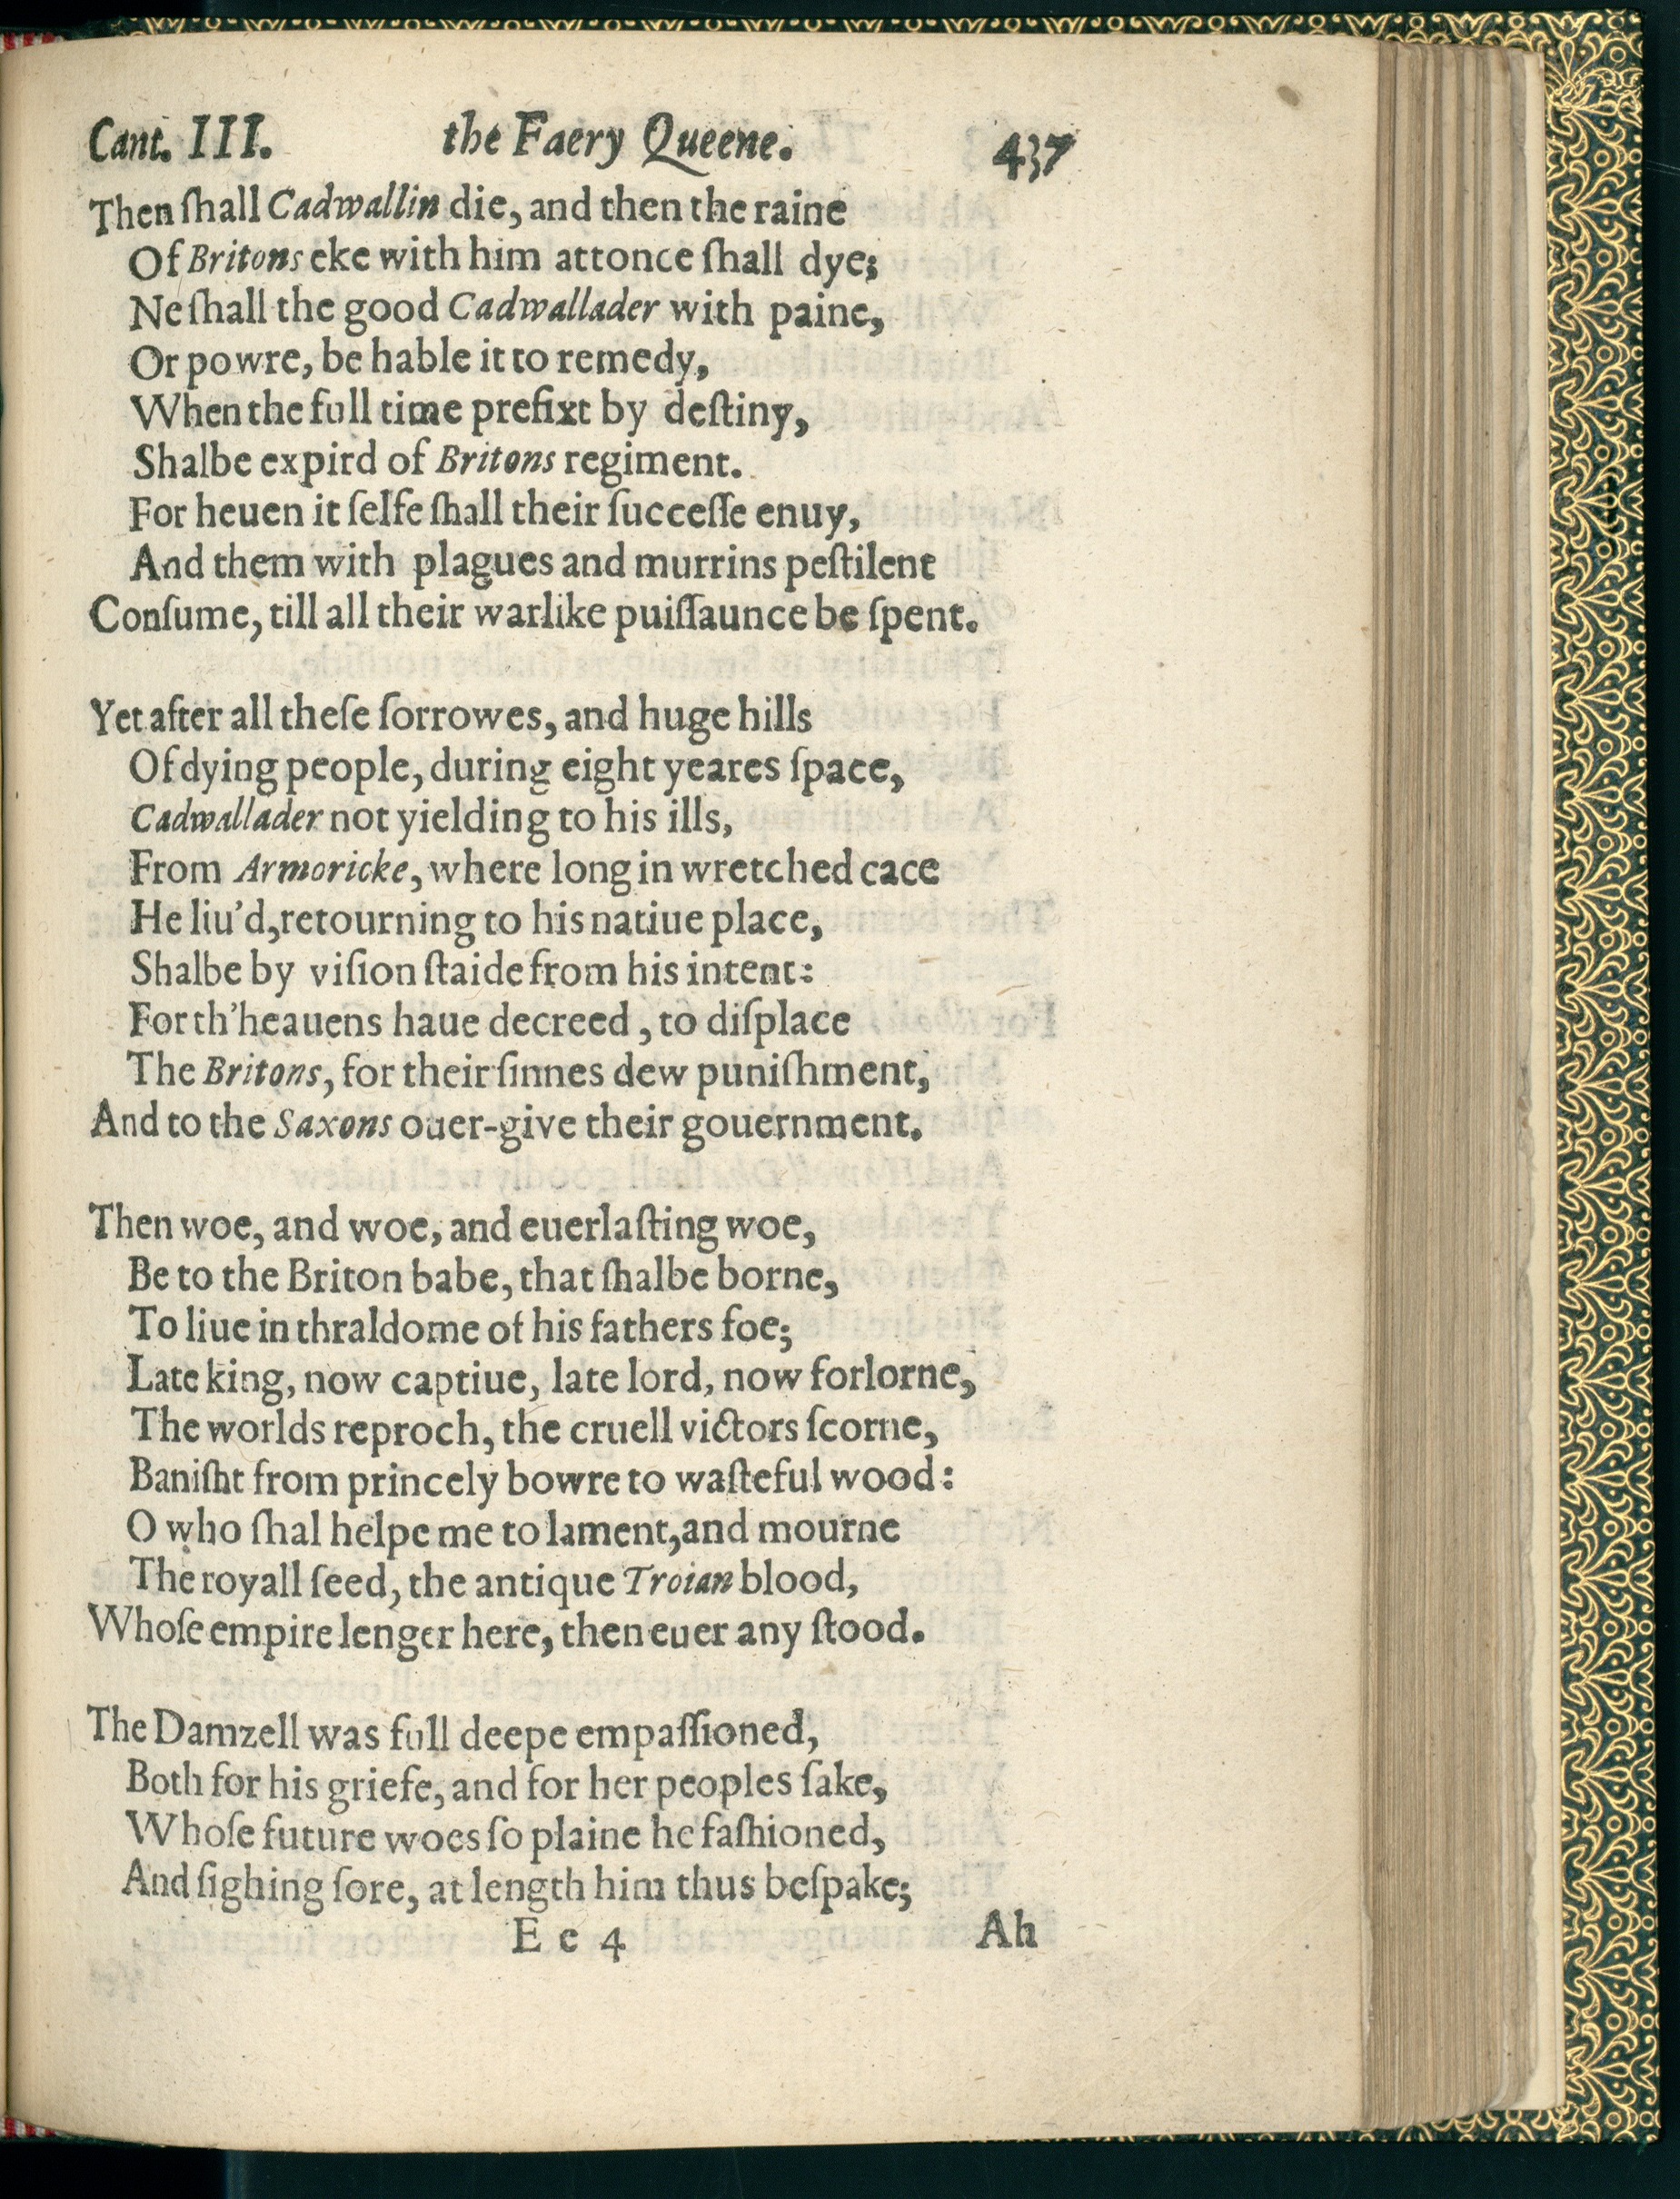 Cant. III. the Faery Queene. 437
Then ſhall Cadwallin die, and then the raine
Of Britons eke with him attonce ſhall dye;
Ne ſhall the good Cadwallader with paine,
Or powre, be hable it to remedy,
When the full time prefixt by deſtiny,
Shalbe expird of Britons regiment.
For heuen it ſelfe ſhall their ſucceſſe enuy,
And them with plagues and murrins peſtilent
Conſume, till all their warlike puiſſaunce be ſpent.
Yet after all theſe ſorrowes, and huge hills
Of dying people, during eight yeares ſpace,
Cadwallader not yielding to his ills,
From Armoricke, where long in wretched cace
He liu'd, retourning to his natiue place,
Shalbe by viſion ſtaide from his intent:
For th'heauens haue decreed, to diſplace
The Britons, for their ſinnes dew puniſhment,
And to the Saxons ouer-give their gouernment.
Then woe, and woe, and euerlaſting woe,
Be to the Briton babe, that ſhalbe borne,
To liue in thraldome of his fathers foe;
Late king, now captiue, late lord, now forlorne,
The worlds reproch, the cruell victors ſcorne,
Baniſht from princely bowre to waſteful wood:
O who ſhal helpe me to lament, and mourne
The royall ſeed, the antique Troian blood,
Whoſe empire lenger here, then euer any ſtood.
The Damzell was full deepe empaſſioned,
Both for his griefe, and for her peoples ſake,
Whoſe future woes ſo plaine he faſhioned,
And ſighing ſore, at length him thus beſpake;
E e 4 Ah